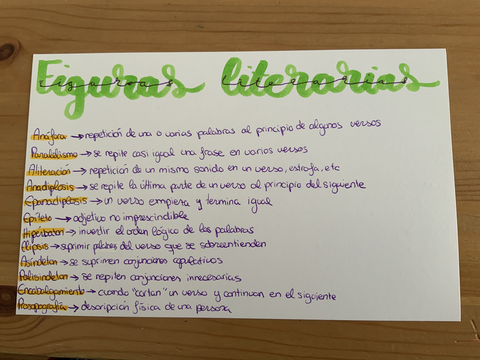 Figuras literarias
Anáfora → repetición de una o varias palabras al principio de algunos versos
Paralelismo → se repite casi igual una frase en varios versos
Aliteración → repetición de un mismo sonido en un verso, estrofa, etc
Anadiplosis → se repite la última parte de un verso al principio del siguiente
Epanadiplosis → un verso empieza y termina igual
Epíteto → adjetivo no imprescindible
Hipérbaton → invertir el orden lógico de las palabras
Elipsis → suprimir palabras del verso que se sobreentienden
Asíndeton → se suprimen conjunciones copulativas
Polisíndeton → se repiten conjunciones innecesarias
Encabalgamiento → cuando "cortan" un verso y continúan en el siguiente
Prosopografía → descripción física de una persona